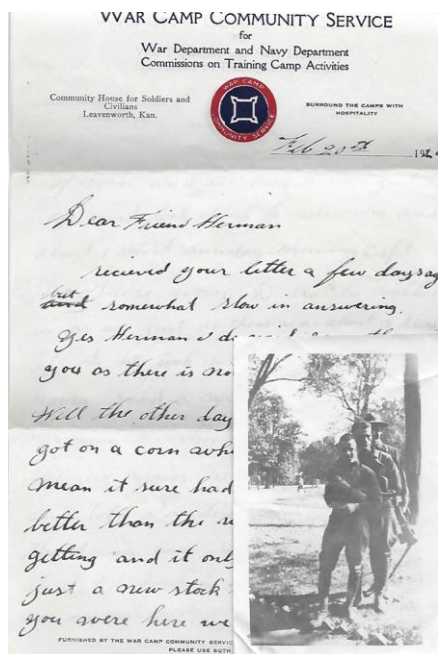 WAR CAMP COMMUNITY SERVICE
for
War Department and Navy Department
Commissions on Training Camp Activities
Community House for Soldiers and
Civilians
Leavenworth, Kan.
WAR CAMP
COMMUNITY SERVICE
SURROUND THE CAMPS WITH
HOSPITALITY
Feb 20th 19
Dear Friend Herman
recieved your letter a few days ag
but
and somewhat slow in answering.
Yes Herman I do wish
you as there is no
Well the other day
got on a corn whi
mean it sure had
better than the
getting and it onl
just a new stock
you were here we
FURNISHED BY THE WAR CAMP COMMUNITY SERVIC
PLEASE USE BOTH